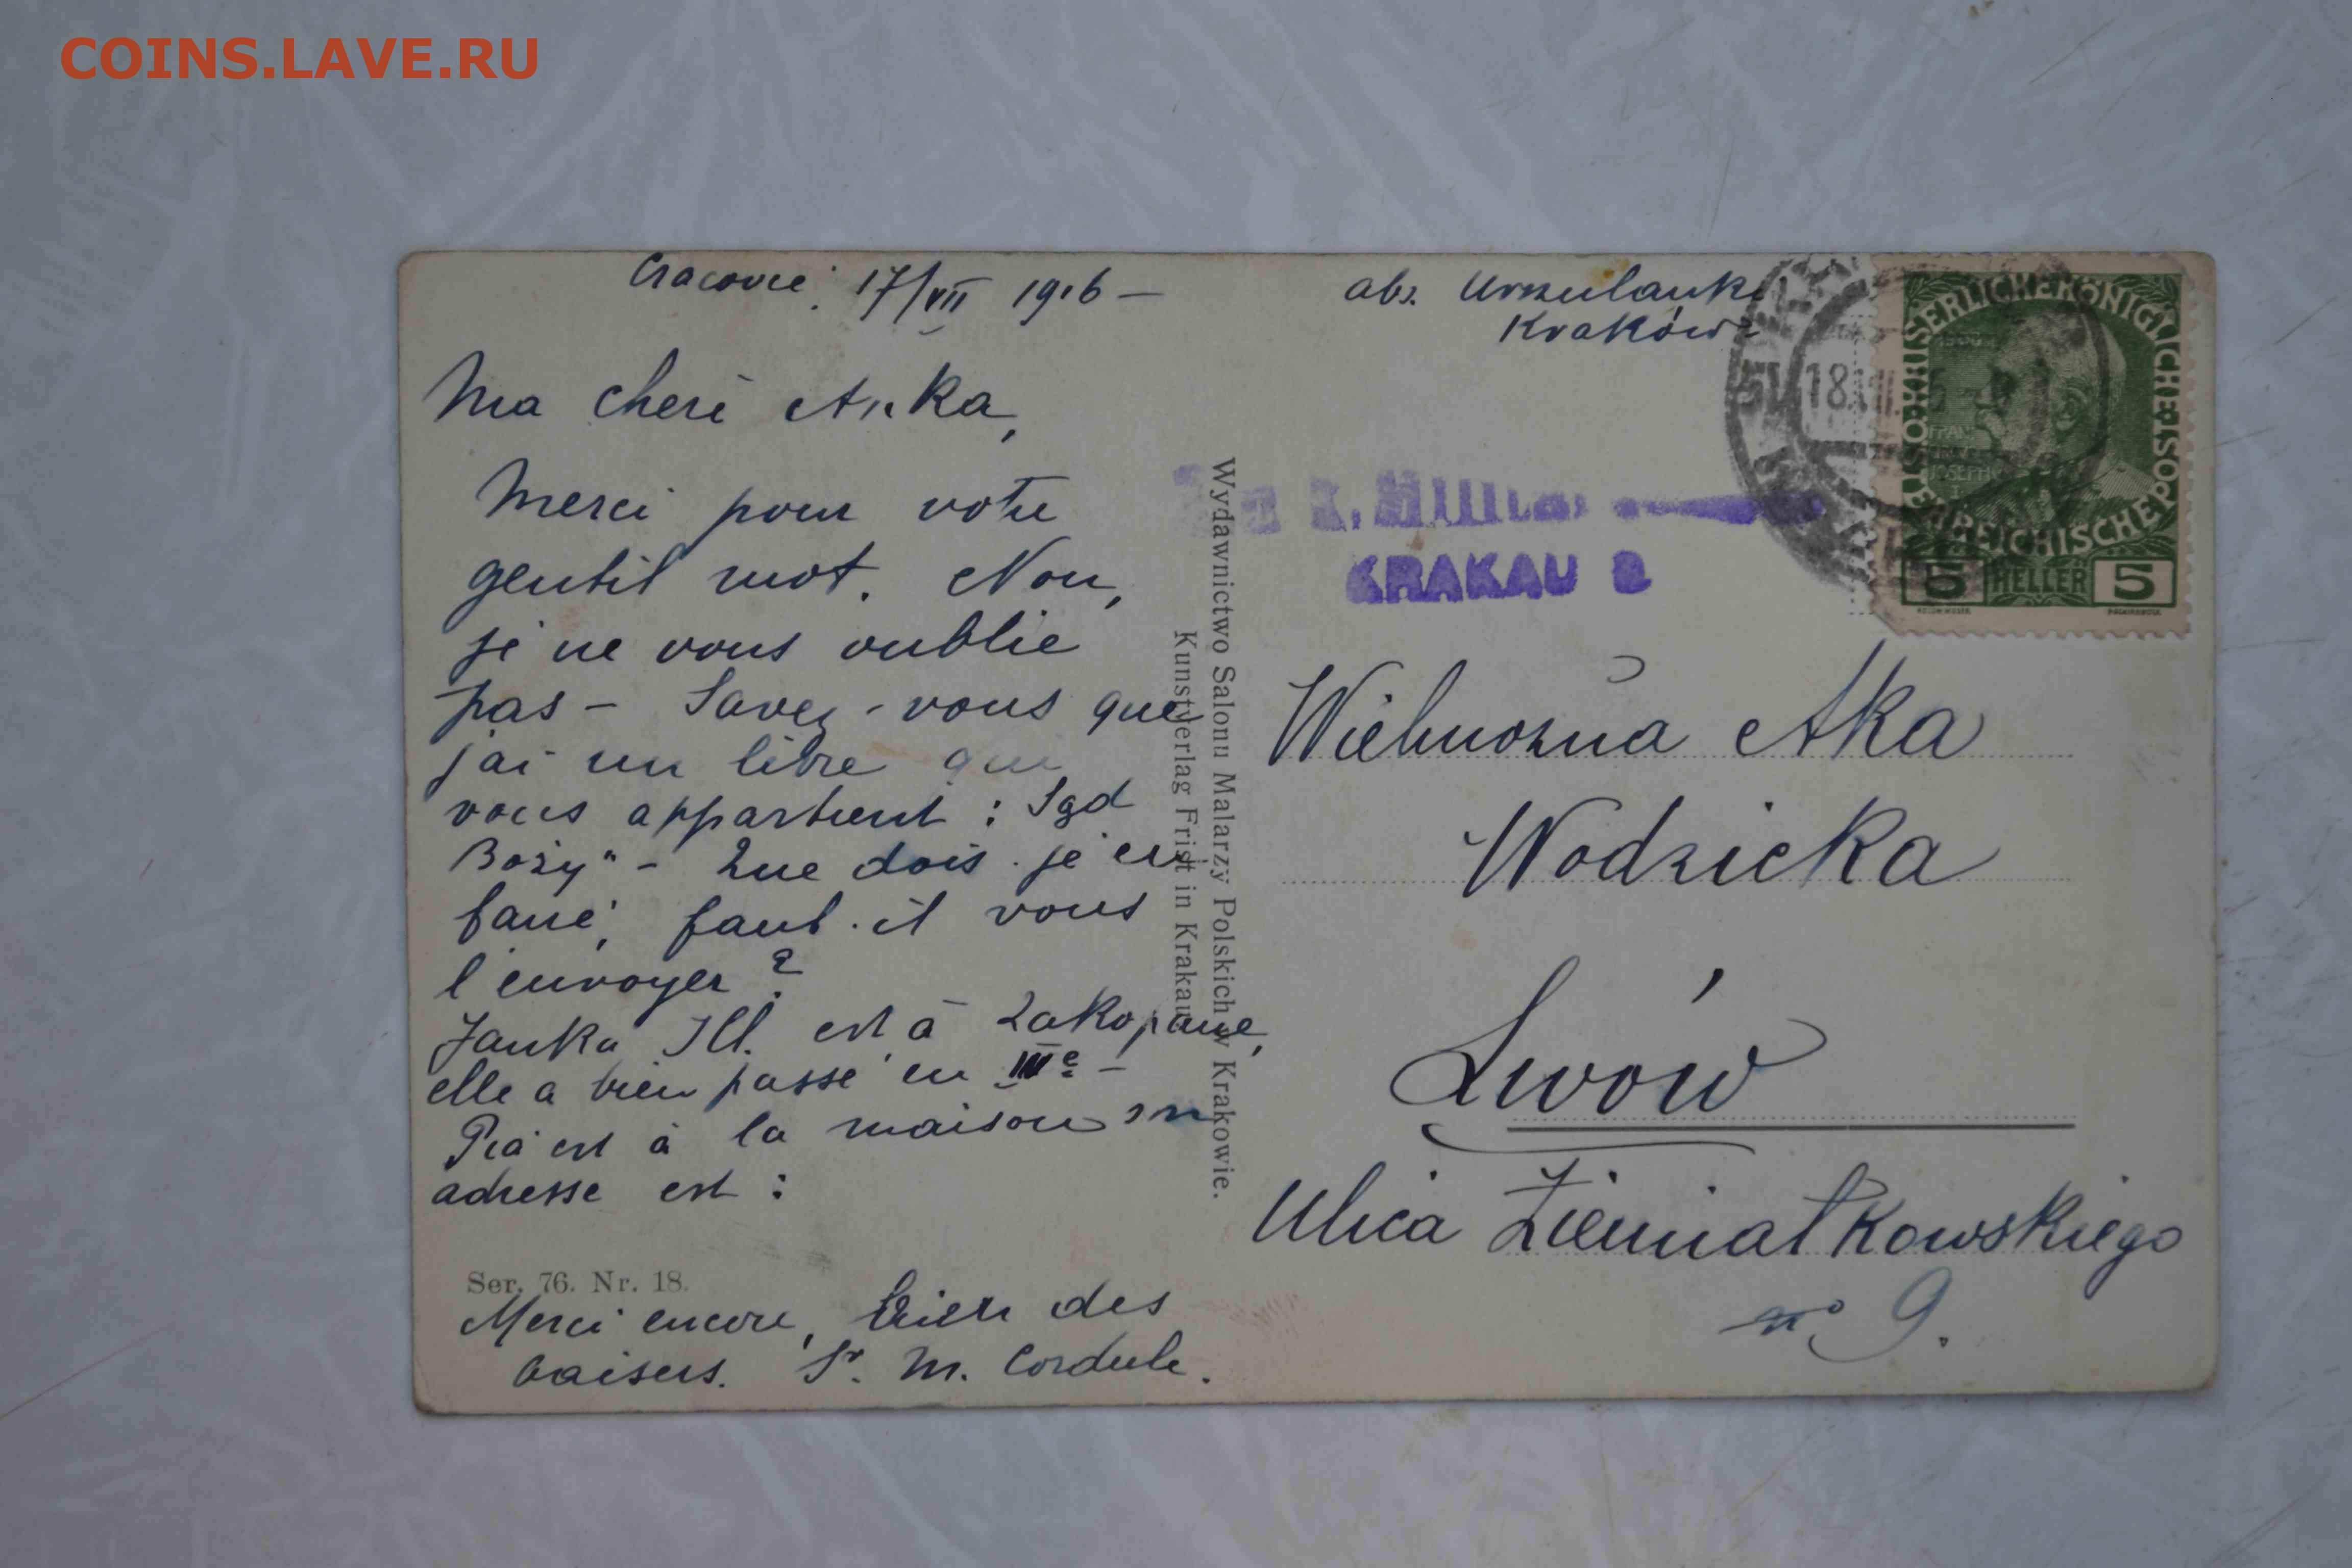 COINS.LAVE.RU
Cracovie. 17/VII 1916 —
Ma cheri Anka,
Merci pour votre
gentil mot. Non,
je ne vous oublie
pas – Savez-vous que
j'ai un libre que
vous appartient : Sąd
Boży" – Que dois-je en
faire, faut-il vous
l'envoyer ?
Janka Ill. est à Zakopane,
elle a bien passé en IIIe –
Pia est à la maison
adresse est :
Ser. 76. Nr. 18.
Merci encore, bien des
baisers. Sr. M. Cordule.
Wydawnictwo Salonu Malarzy Polskich w Krakowie.
Kunstverlag Frist in Krakau
abs. Urszulanki
Kraków
18
KAISERLICHE KÖNIGLICHE ÖSTERREICHISCHE POST
FRANZ
JOSEPH
I
5 HELLER 5
KRAKAU
Wielmożna Aka
Wodzicka
Lwów
Ulica Ziemiałkowskiego
no 9.